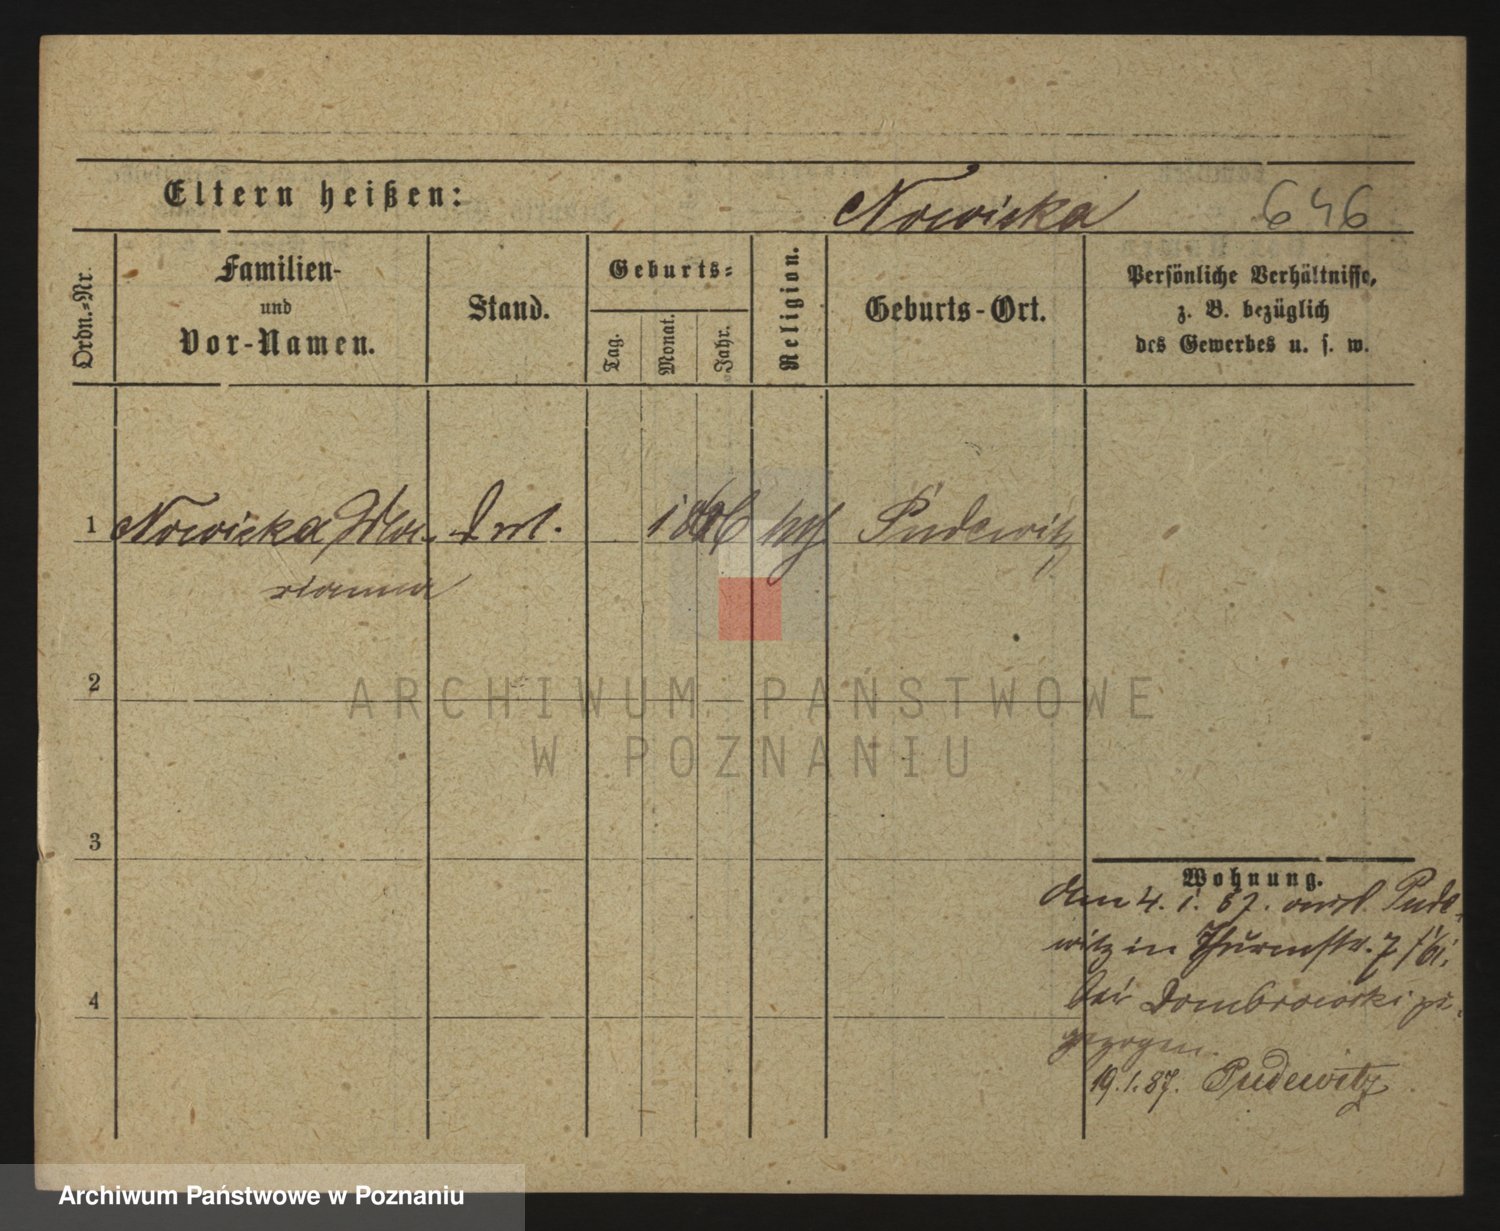 Eltern heißen:
Nowicka 646
Ordn.-Nr.
Familien-
und
Vor-Namen.
Stand.
Geburts-
Tag.
Monat.
Jahr.
Religion.
Geburts-Ort.
Persönliche Verhältnisse,
z. B. bezüglich
des Gewerbes u. s. w.
1 Nowicka, Ma- kth Pudewitz
rianna
2
ARCHIWUM PAŃSTWOWE
W POZNANIU
3
Wohnung.
4
den 4. 1. 87. Pude-
witz in Thurmstr. 7
bei Dombrowski zu-
gezogen.
19.1.87. Pudewitz
Archiwum Państwowe w Poznaniu